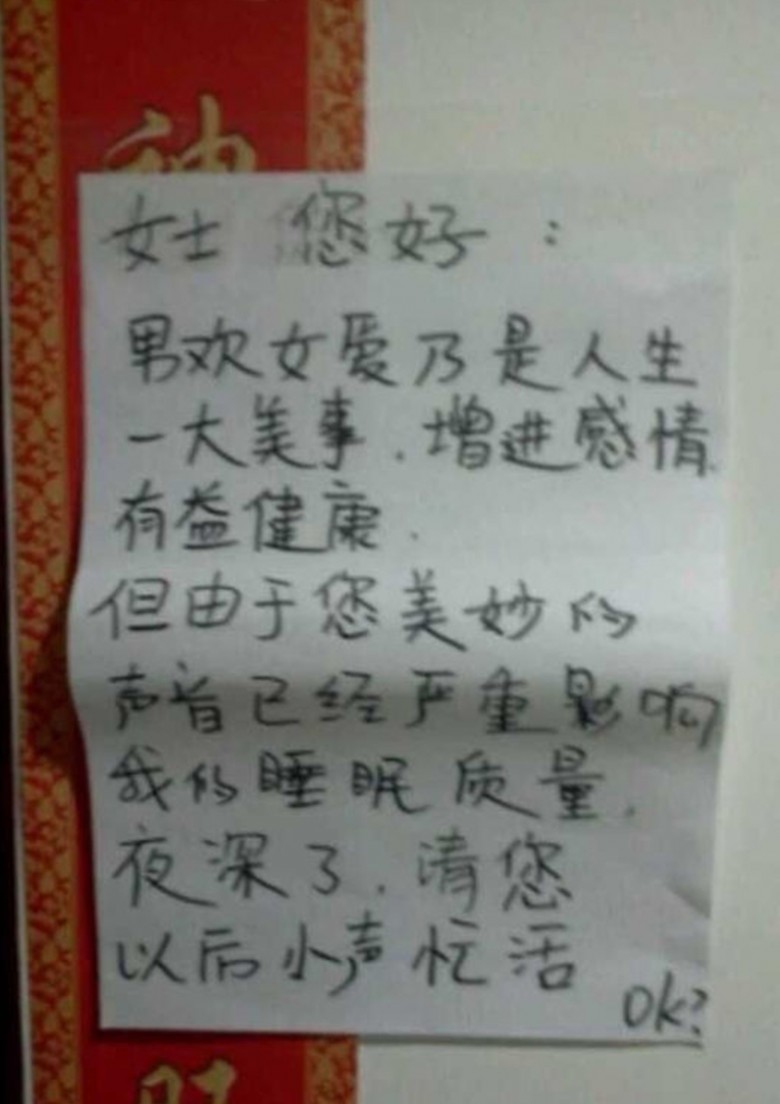 神
女士 您好：
男欢女爱乃是人生
一大美事．增进感情．
有益健康．
但由于您美妙的
声音已经严重影响
我的睡眠质量．
夜深了．清您
以后小声忙活
OK?